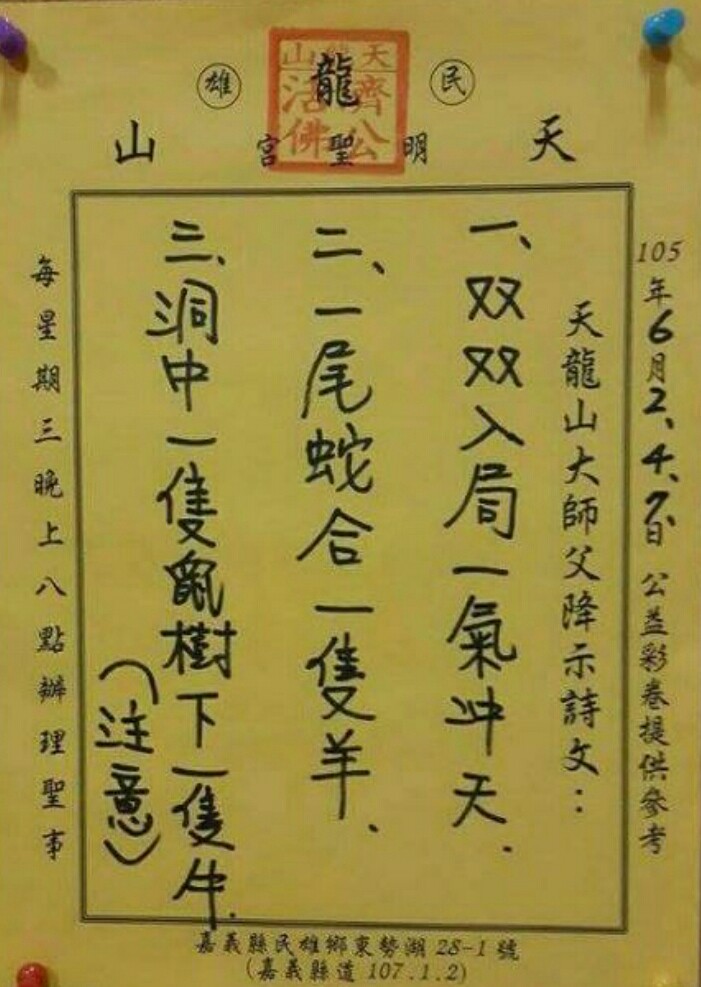 民雄
天龍山
明聖宮
濟公
活佛
105年6月2、4、7日 公益彩卷提供參考
天龍山大師父降示詩文：
一、双双入局一氣冲天.
二、一尾蛇合一隻羊.
三、洞中一隻鼠樹下一隻牛.
(注意)
每星期三晚上八點辦理聖事
嘉義縣民雄鄉東勢湖28-1號
(嘉義縣道107.1.2)